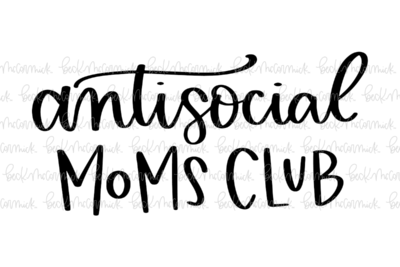 antisocial
MOMS CLUB